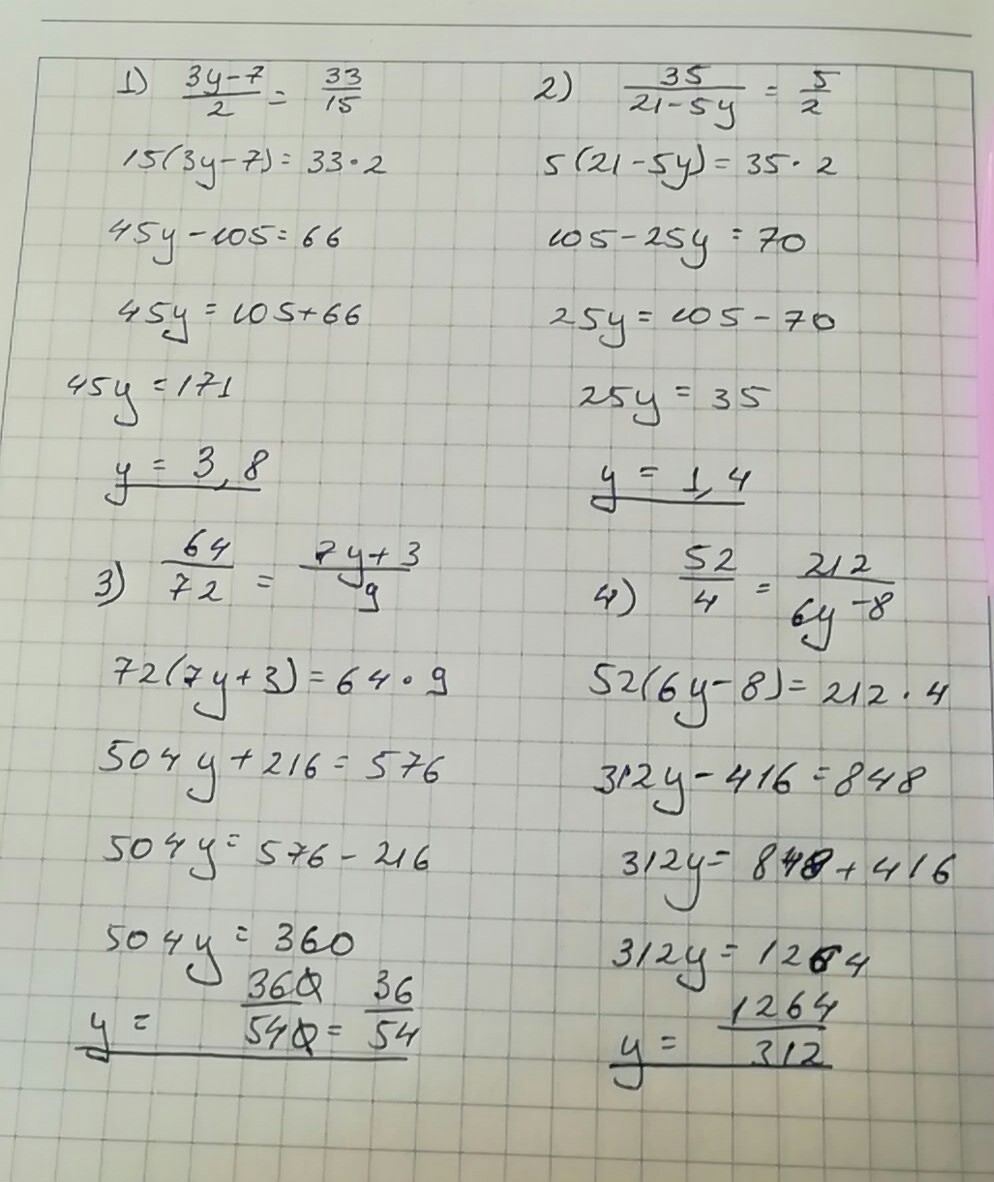 1) (3y-7)/2 = 33/15
15(3y-7) = 33·2
45y-105 = 66
45y = 105+66
45y = 171
y = 3,8
2) 35/(21-5y) = 5/2
5(21-5y) = 35·2
105-25y = 70
25y = 105-70
25y = 35
y = 1,4
3) 64/72 = (7y+3)/9
72(7y+3) = 64·9
504y+216 = 576
504y = 576-216
504y = 360
y = 360/540 = 36/54
4) 52/4 = 212/(6y-8)
52(6y-8) = 212·4
312y-416 = 848
312y = 848+416
312y = 1264
y = 1264/312